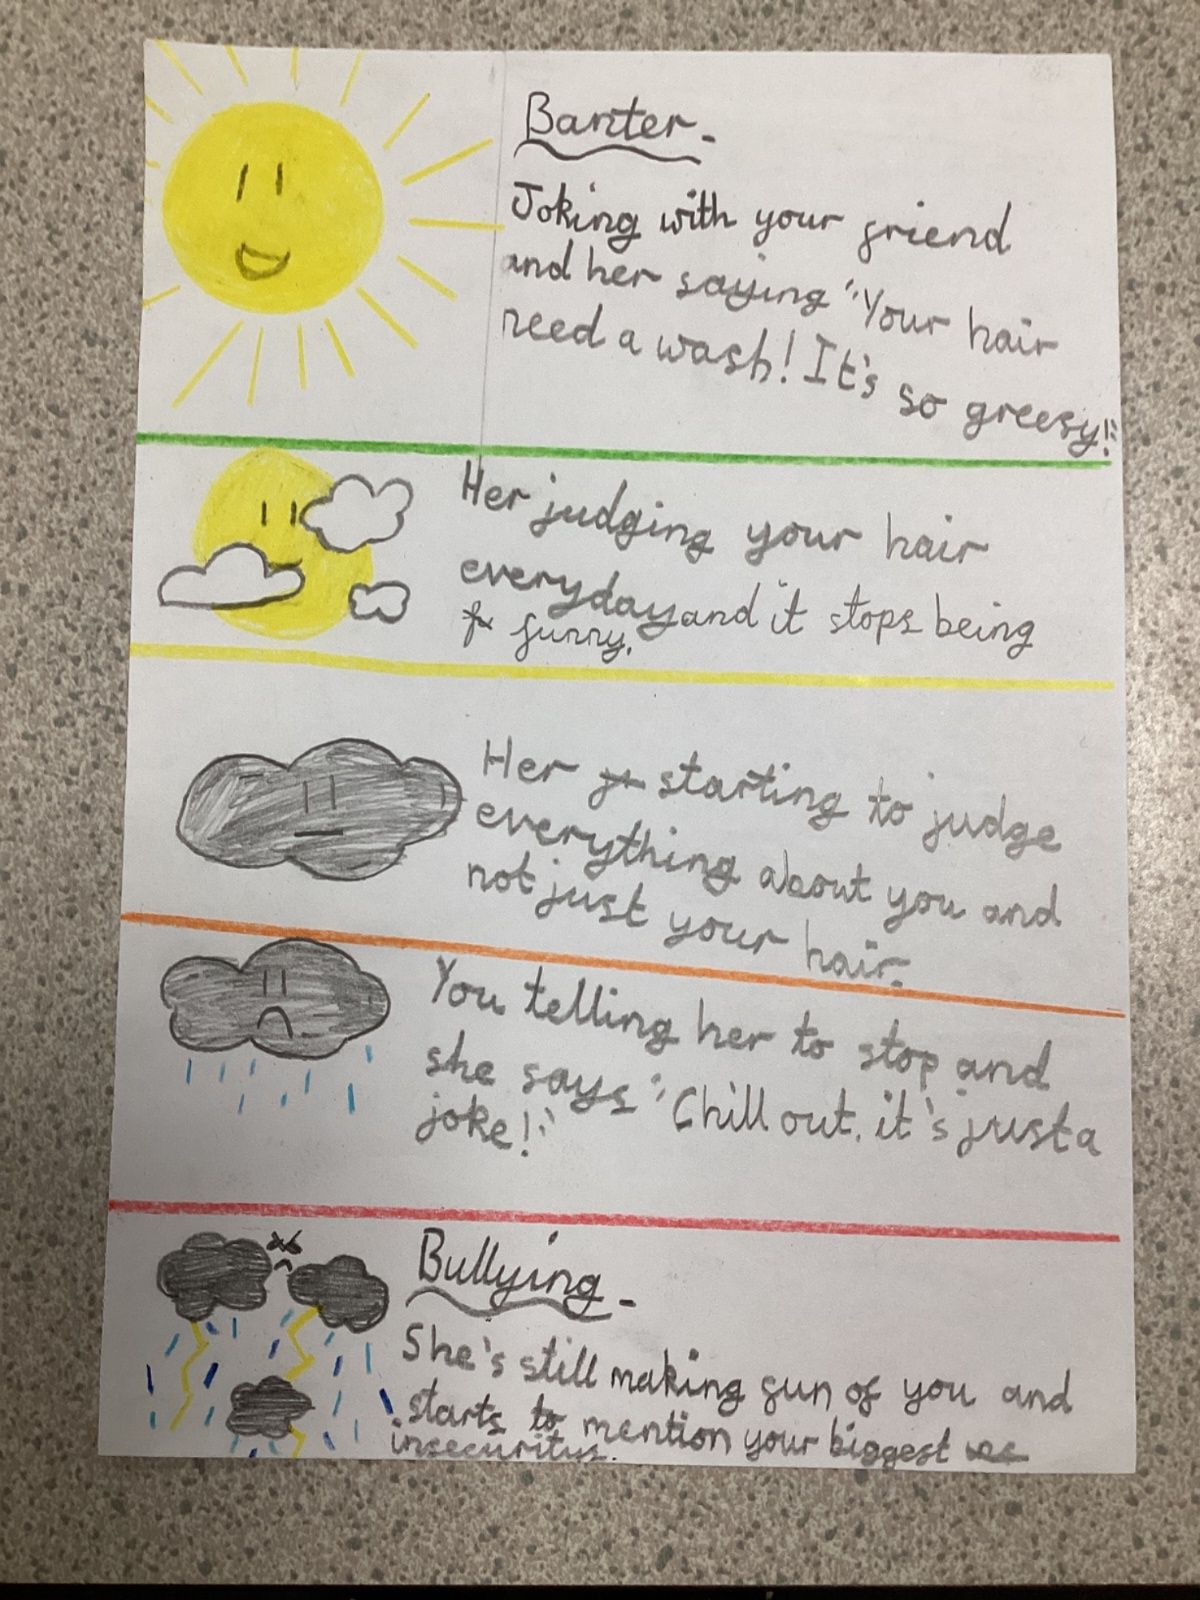 Banter-
Joking with your friend
and her saying "Your hair
need a wash! It's so greesy!"
Her judging your hair
everyday and it stops being
funny.
Her starting to judge
everything about you and
not just your hair.
You telling her to stop and
she says "Chill out, it's just a
joke!"
Bullying-
She's still making fun of you and
starts to mention your biggest
insecuritys.